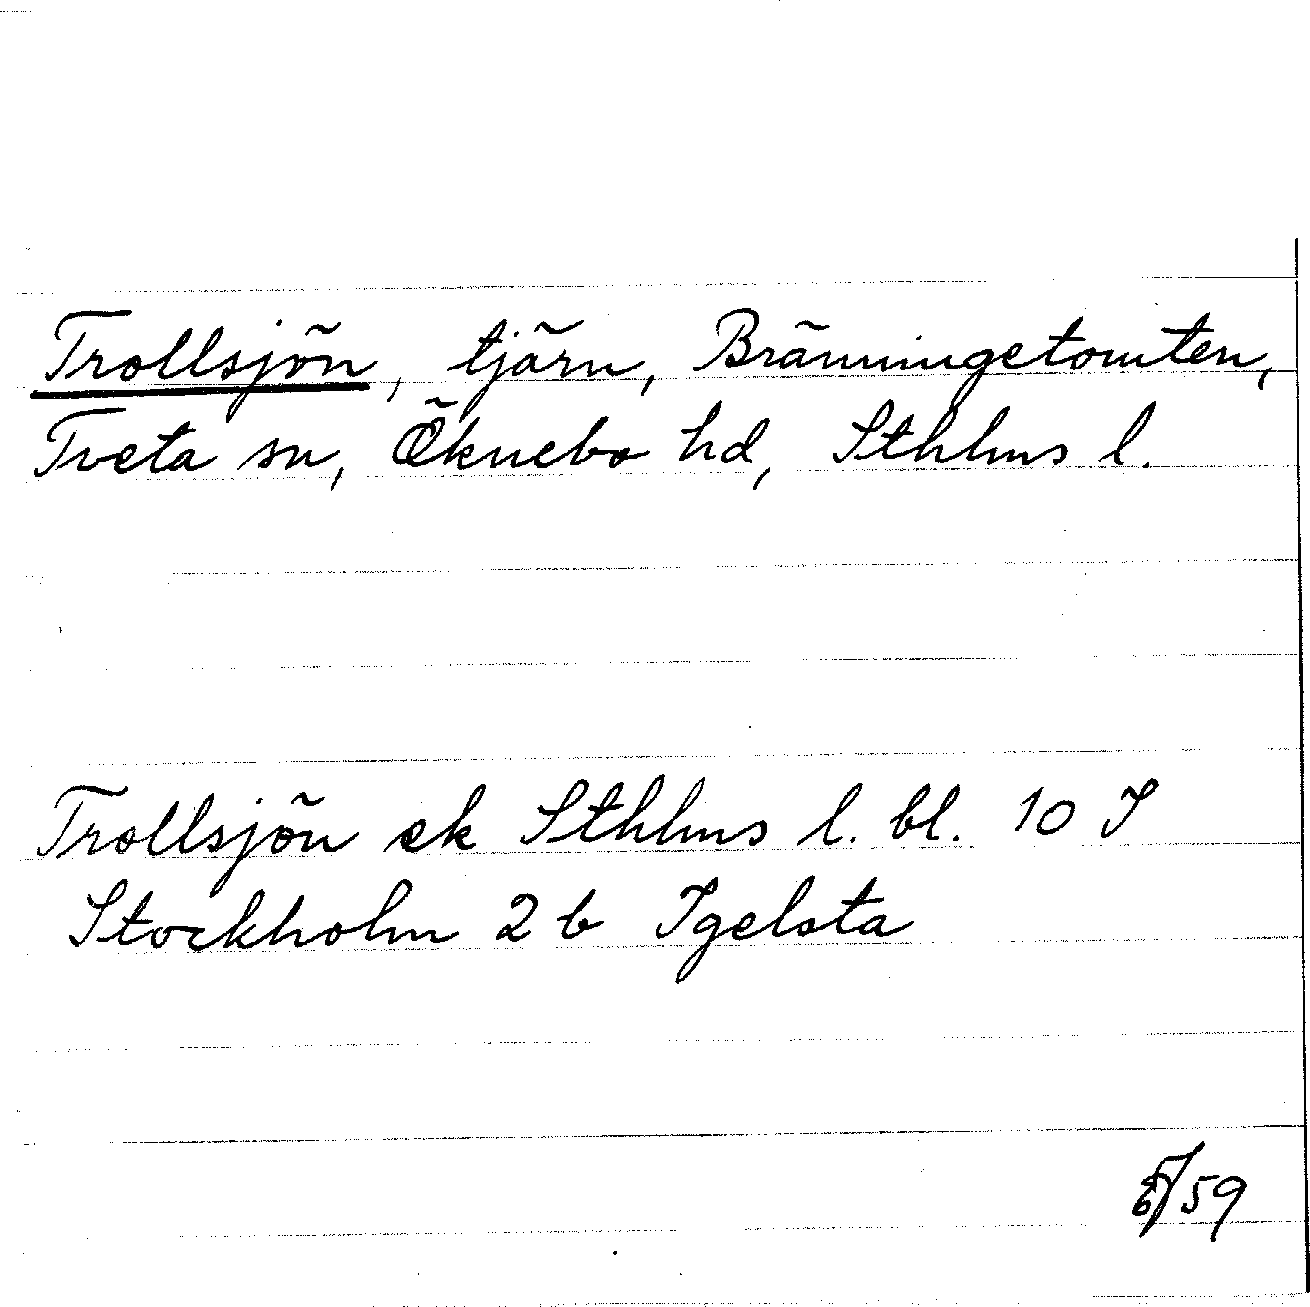 Trollsjön, tjärn, Bränningetomten,
Tveta sn, Öknebo hd, Sthlms l.
Trollsjön ek Sthlms l. bl. 10 I
Stockholm 2 b Igelsta
/59